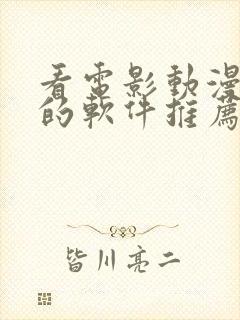 看電影動漫
的軟件推薦
皆川亮二